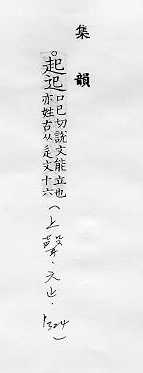 集韻
。起𨑔
口己切說文能立也
亦姓古从辵文十六
（上聲．六止．p324）